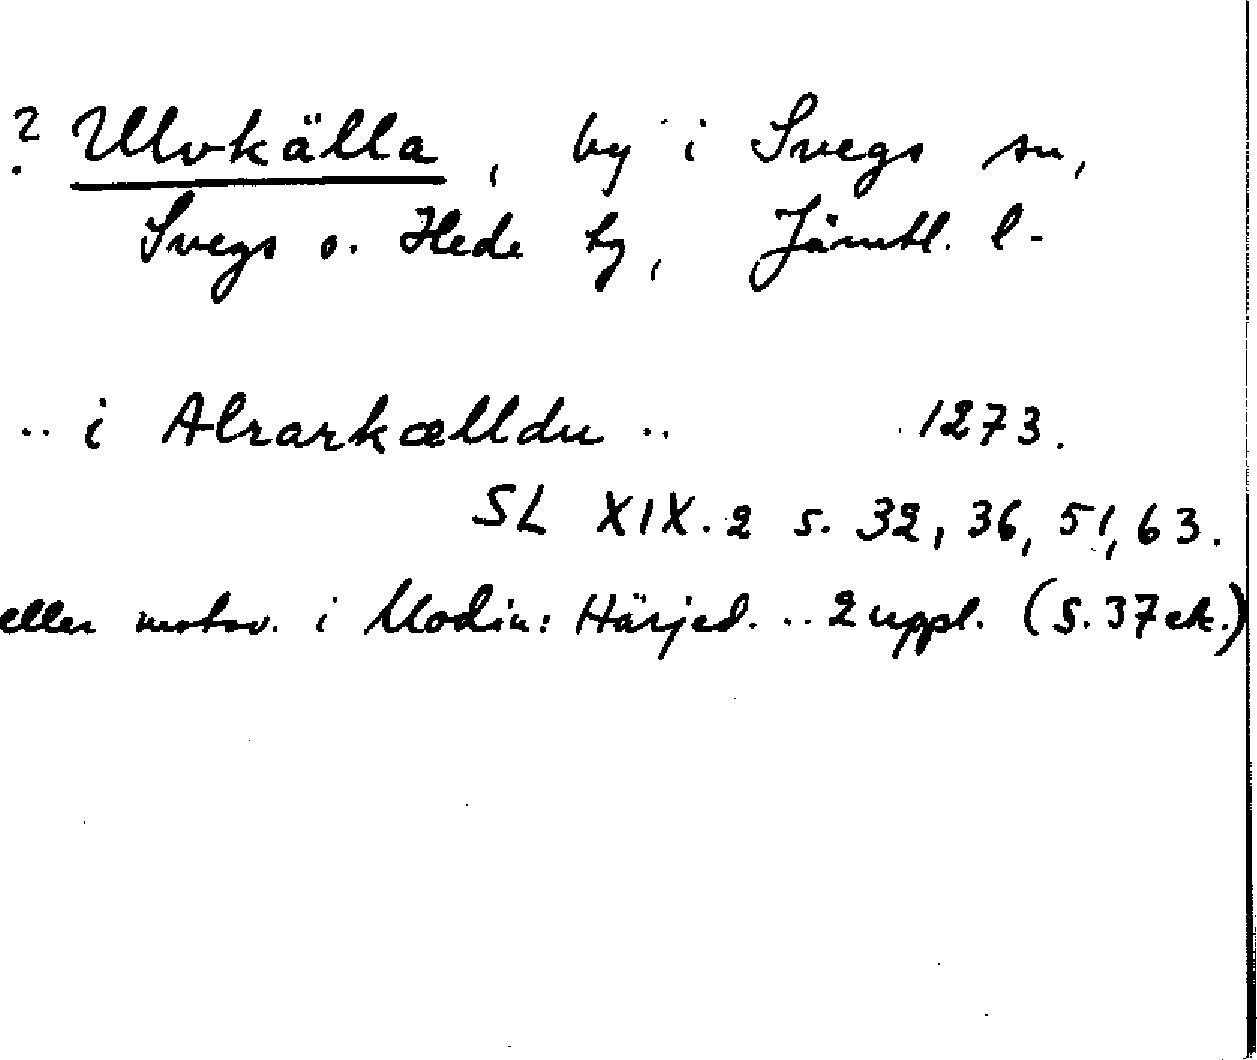 ? Ulvkälla, by i Svegs sn,
Svegs o. Hede hg, Jämtl. l.
.. i Alrarkælldu .. 1273.
SL XIX. 2 s. 32, 36, 51, 63.
eller motsv. i Modin: Härjed. .. 2 uppl. (S. 37 etc.)